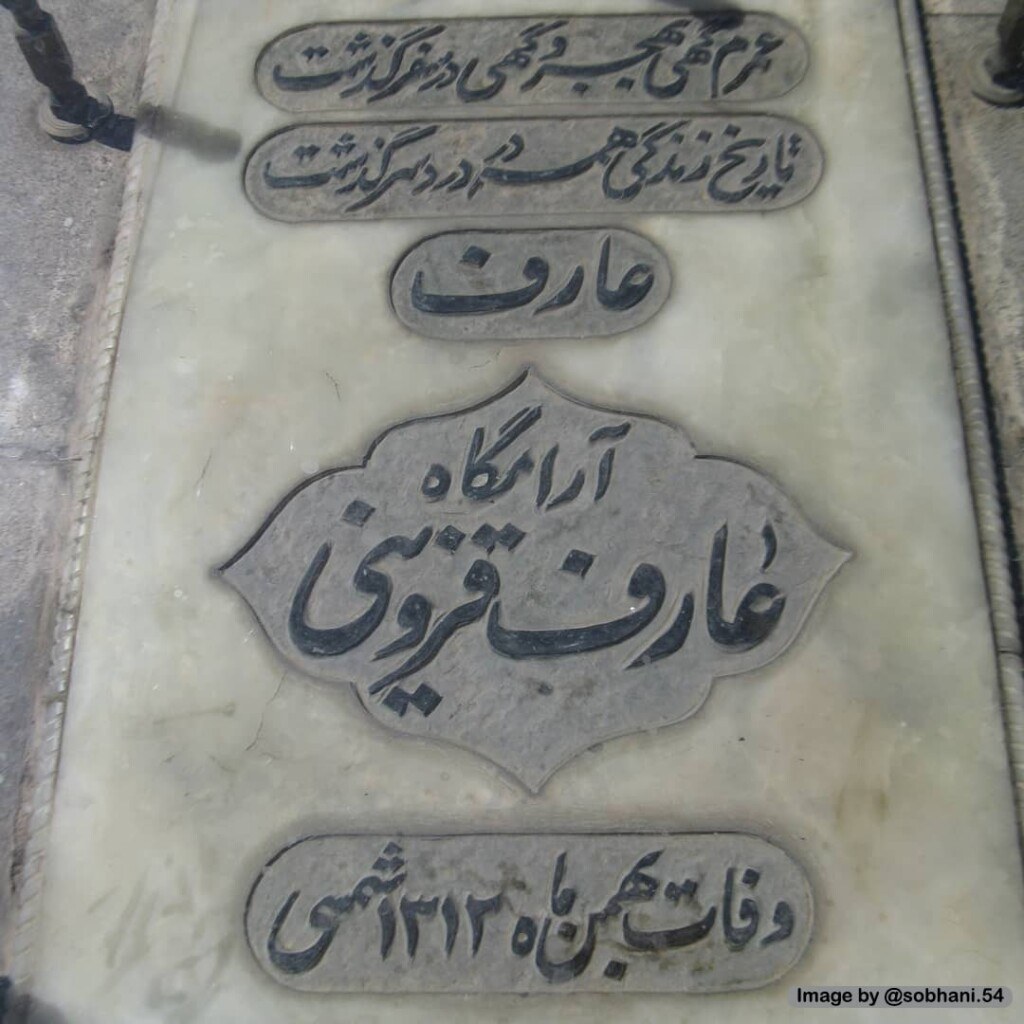 عمرم گهی بهجر و گهی در سفر گذشت
تاریخ زندگی همه در درد سر گذشت
عارف
آرامگاه
عارف قزوینی
وفات بهمن ماه ۱۳۱۲ شمسی
Image by @sobhani.54